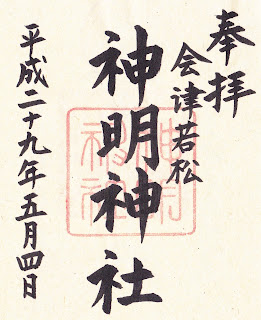 奉拝
会津若松
神明神社
平成二十九年五月四日